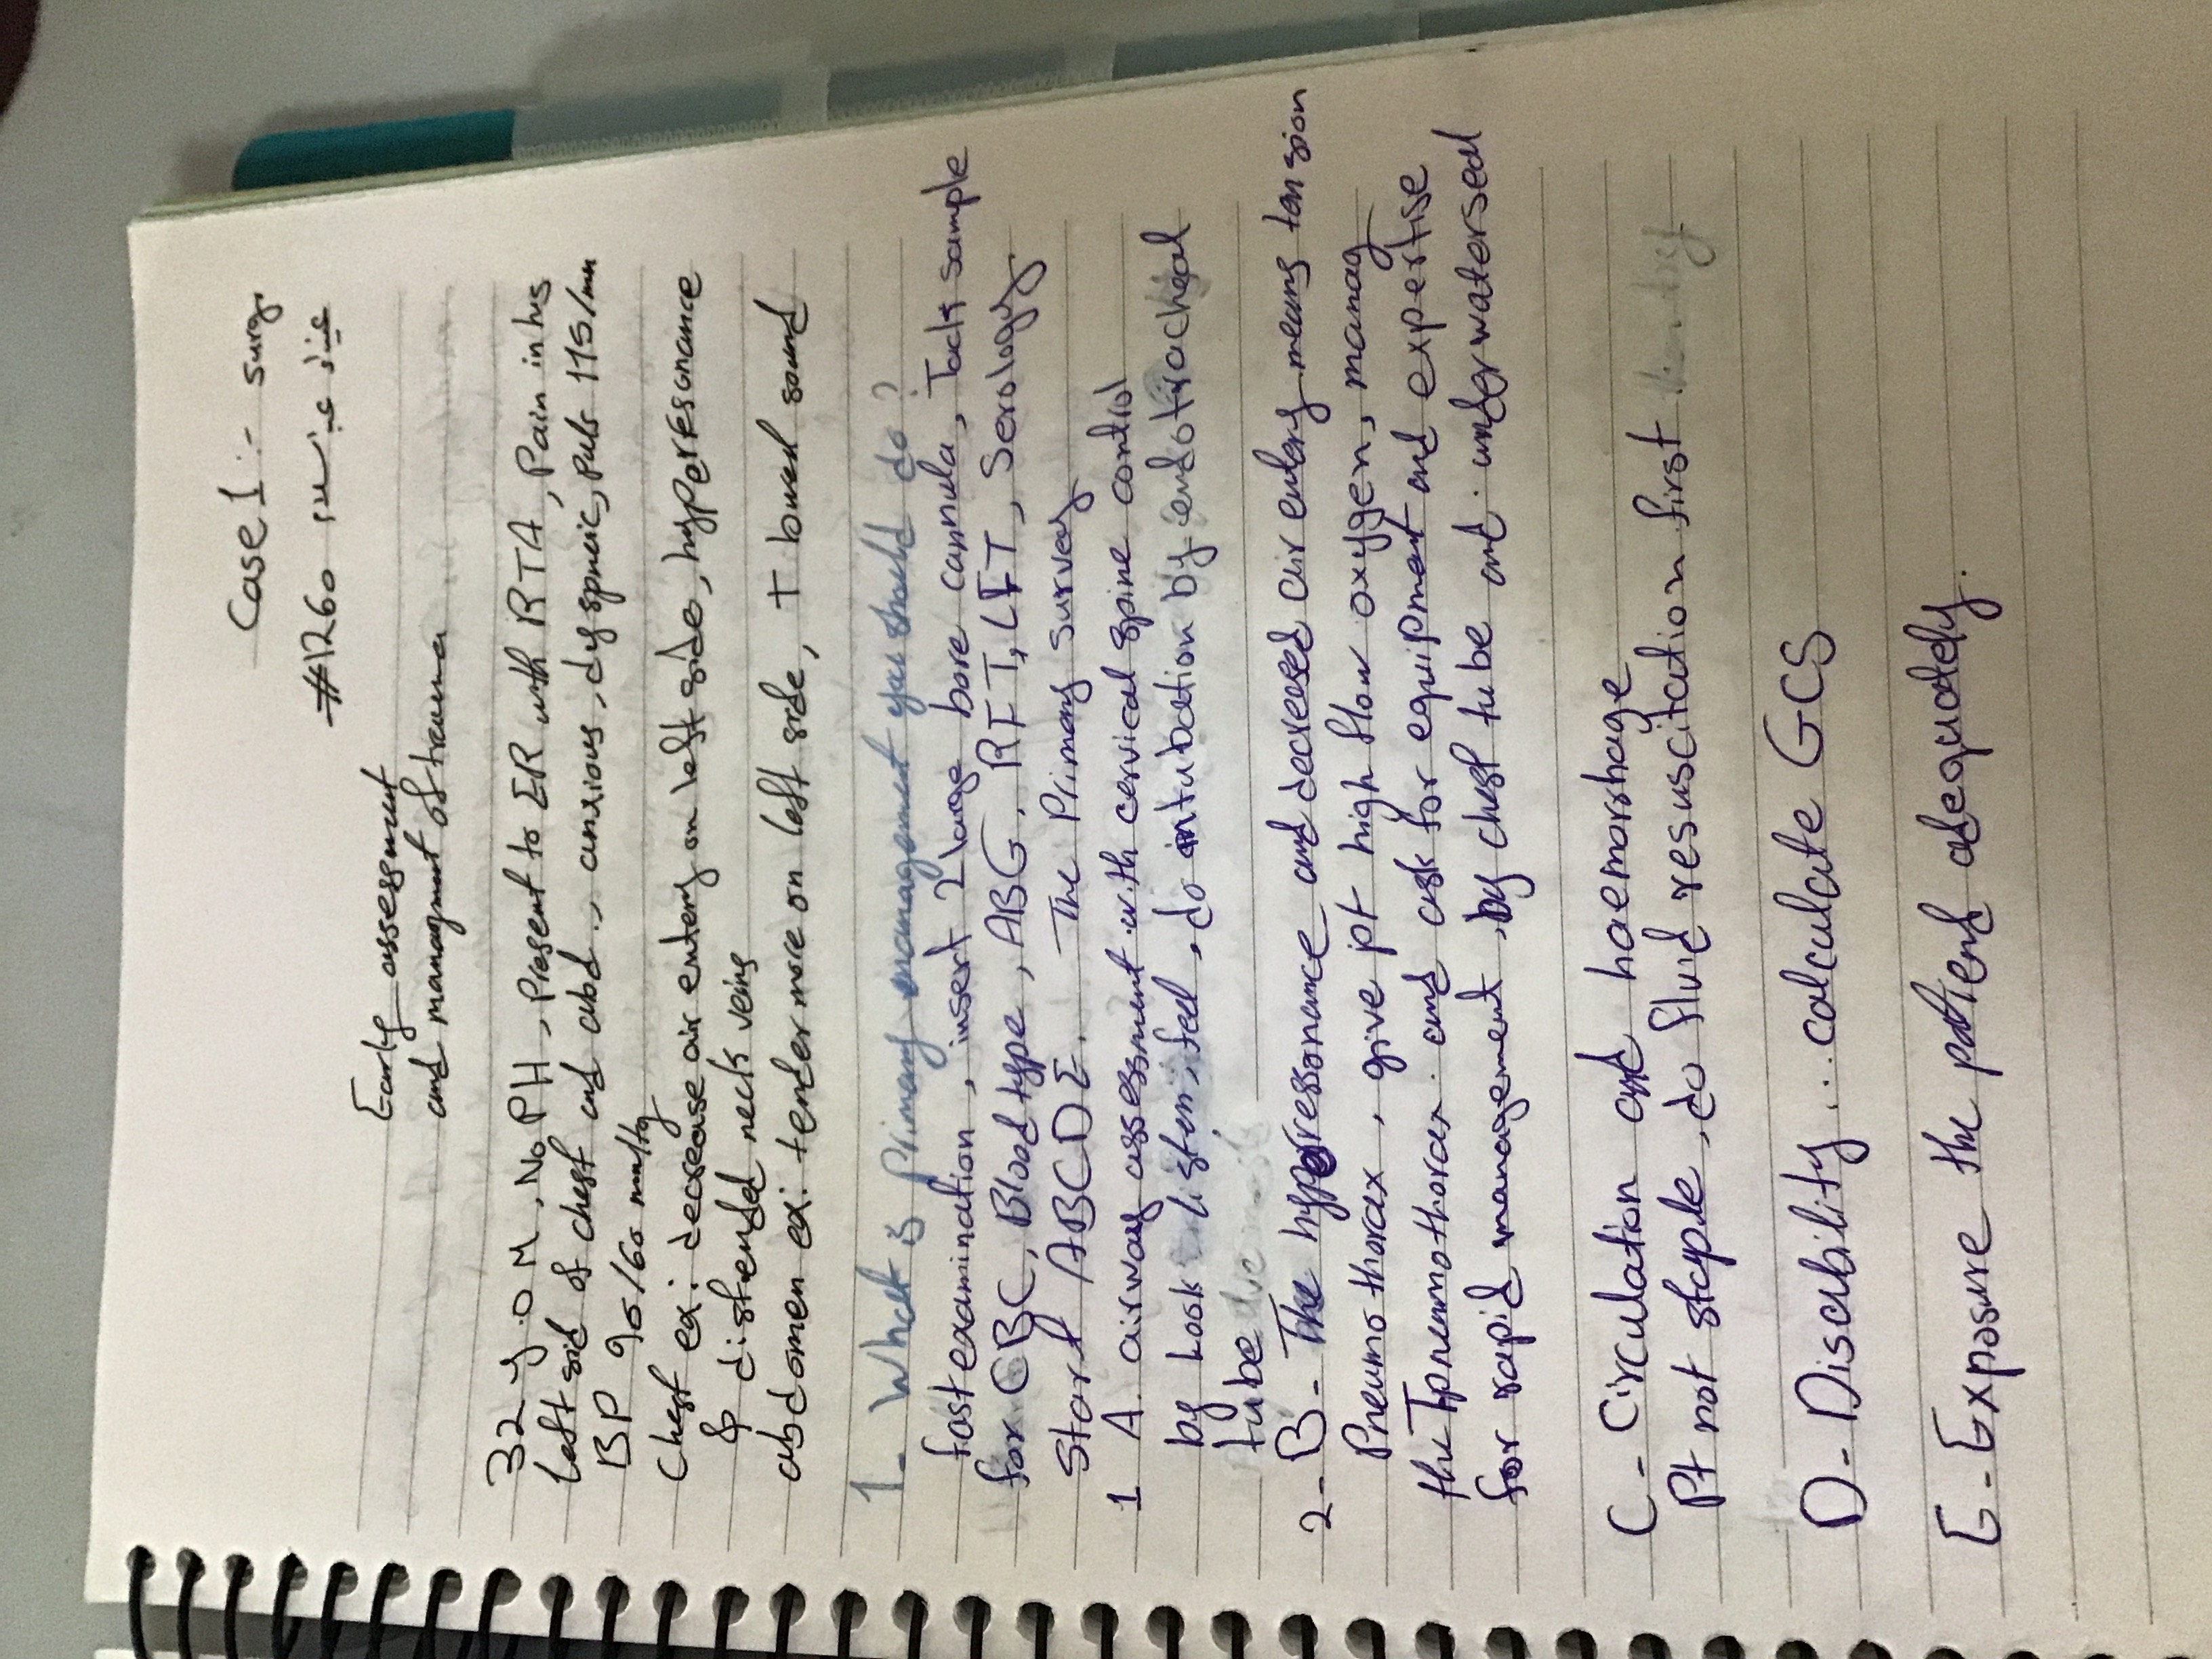 Case 1 :- surg.
#1260
Early assessment
and managment of trauma
32 y.o M, No PH, Present to ER with RTA, Pain in his
left sid of chest and abd.., anxious, dyspneic, Puls 115/min
BP 90/60 mmHg
Chest ex: decrease air entery on left side, hyperresonance
& distended neck veins
abdomen ex: tender more on left side, + bowel sound
1- What is Primary management you should do?
fast examination, insert 2 large bore cannula, Tack sample
for CBC, Blood type, ABG, RFT, LFT, Serology
Start ABCDE. The Primary survey
1 A. airway assessment with cervical spine control
by look listen, feel, do intubation by endotracheal
tube
2-B- The hyperressonance and decresed air entery means tension
Pneumothorax, give pt high flow oxygen, manag
the Tpneumothorax and ask for equipment and expertise
for rapid management, by chest tube and underwaterseal
C- Circulation and haemorrhage
Pt not staple, do fluid resuscitation first
D- Disability... calculate GCS
E- Exposure the patiend adequately.